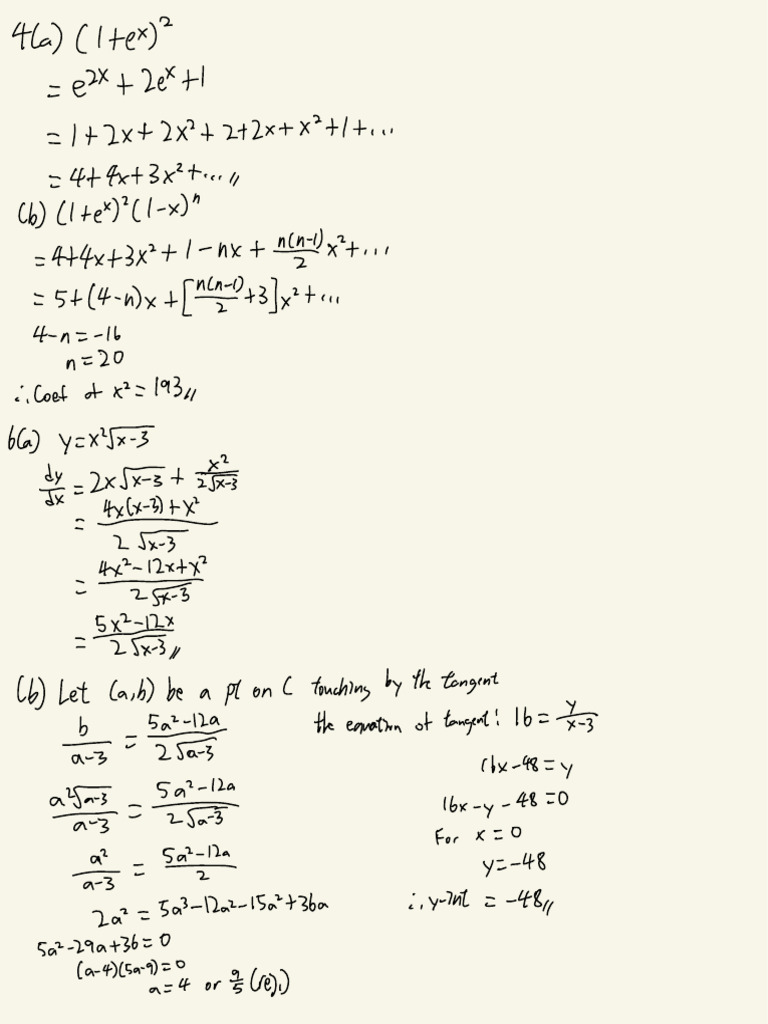 4(a) (1+e^x)^2
= e^{2x} + 2e^x + 1
= 1 + 2x + 2x^2 + 2 + 2x + x^2 + 1 + ...
= 4 + 4x + 3x^2 + ... //
(b) (1+e^x)^2 (1-x)^n
= 4 + 4x + 3x^2 + 1 - nx + \frac{n(n-1)}{2} x^2 + ...
= 5 + (4-n)x + [\frac{n(n-1)}{2} + 3] x^2 + ...
4 - n = -16
n = 20
∴ Coef of x^2 = 193 //
6(a) y = x^2 \sqrt{x-3}
\frac{dy}{dx} = 2x\sqrt{x-3} + \frac{x^2}{2\sqrt{x-3}}
= \frac{4x(x-3) + x^2}{2\sqrt{x-3}}
= \frac{4x^2 - 12x + x^2}{2\sqrt{x-3}}
= \frac{5x^2 - 12x}{2\sqrt{x-3}} //
(b) Let (a,b) be a pt on C touching by the tangent
\frac{b}{a-3} = \frac{5a^2 - 12a}{2\sqrt{a-3}}
\frac{a^2\sqrt{a-3}}{a-3} = \frac{5a^2 - 12a}{2\sqrt{a-3}}
\frac{a^2}{a-3} = \frac{5a^2 - 12a}{2}
2a^2 = 5a^3 - 12a^2 - 15a^2 + 36a
5a^2 - 29a + 36 = 0
(a-4)(5a-9) = 0
a = 4 or \frac{9}{5} (rej.)
the equation of tangent: 16 = \frac{y}{x-3}
16x - 48 = y
16x - y - 48 = 0
For x = 0
y = -48
∴ y-int = -48 //